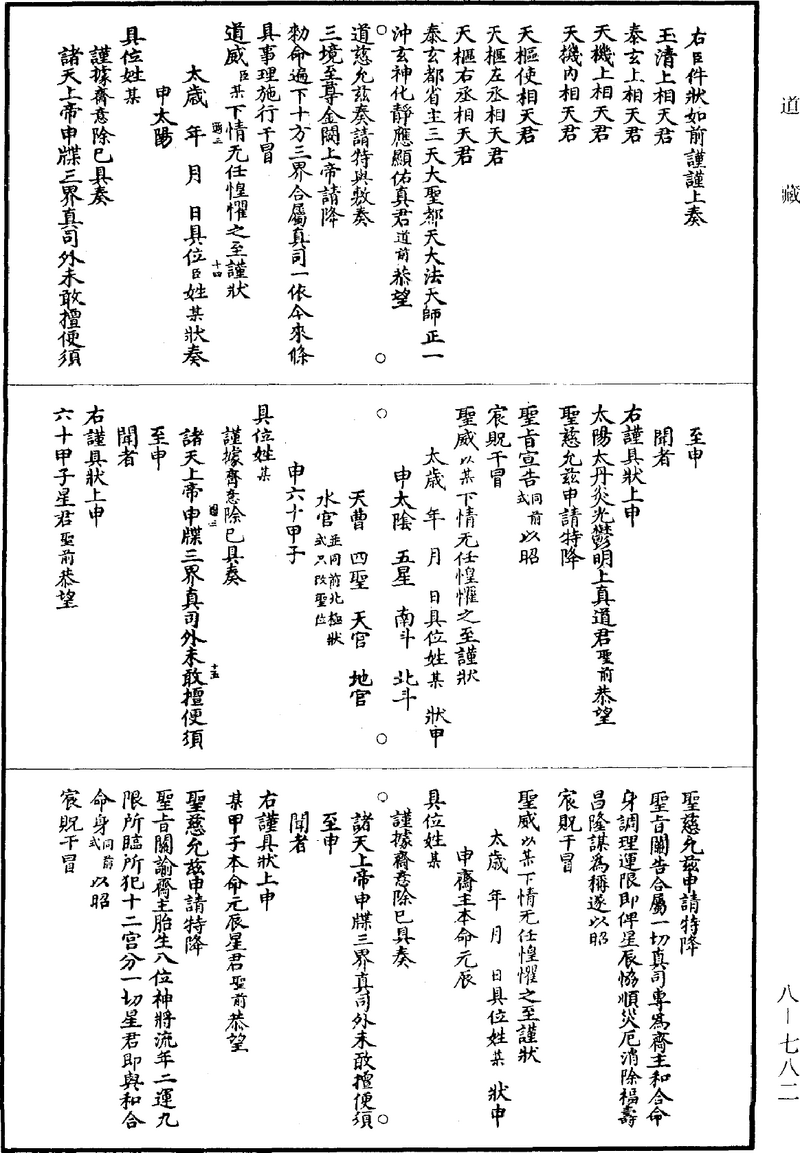 道藏
右臣件狀如前謹謹上奏
玉清上相天君
泰玄上相天君
天機上相天君
天機內相天君
天樞使相天君
天樞左丞相天君
天樞右丞相天君
泰玄都省主三天大聖都天大法天師正一
沖玄神化靜應顯佑真君道前恭望
道慈允茲奏請特與敷奏
三境至尊金闕上帝請降
勑命遍下十方三界合屬真司一依今來條
具事理施行干冒
道威臣某下情无任惶懼之至謹狀
十四
太歲 年 月 日具位臣姓某狀奏
申太陽
具位姓某
謹據齋意除已具奏
諸天上帝申牒三界真司外未敢擅便須
至申
聞者
右謹具狀上申
太陽太丹炎光鬱明上真道君聖前恭望
聖慈允茲申請特降
聖旨宣告同前式以昭
宸貺干冒
聖威以某下情无任惶懼之至謹狀
太歲 年 月 日具位姓某 狀申
申太陰 五星 南斗 北斗
天曹 四聖 天官 地官
水官並同前北極狀式只改聖位
申六十甲子
具位姓某
謹據齋意除已具奏
十五
諸天上帝申牒三界真司外未敢擅便須
至申
聞者
右謹具狀上申
六十甲子星君聖前恭望
聖慈允茲申請特降
聖旨關告合屬一切真司專為齋主和合命
身調理運限即俾星辰恊順災厄消除福壽
昌隆謀為稱遂以昭
宸貺干冒
聖威以某下情无任惶懼之至謹狀
太歲 年 月 日具位姓某 狀申
申齋主本命元辰
具位姓某
謹據齋意除已具奏
諸天上帝申牒三界真司外未敢擅便須
至申
聞者
右謹具狀上申
某甲子本命元辰星君聖前恭望
聖慈允茲申請特降
聖旨關諭齋主胎生八位神將流年二運九
限所臨所犯十二宮分一切星君即與和合
命身同前式以昭
宸貺干冒
八－七八二